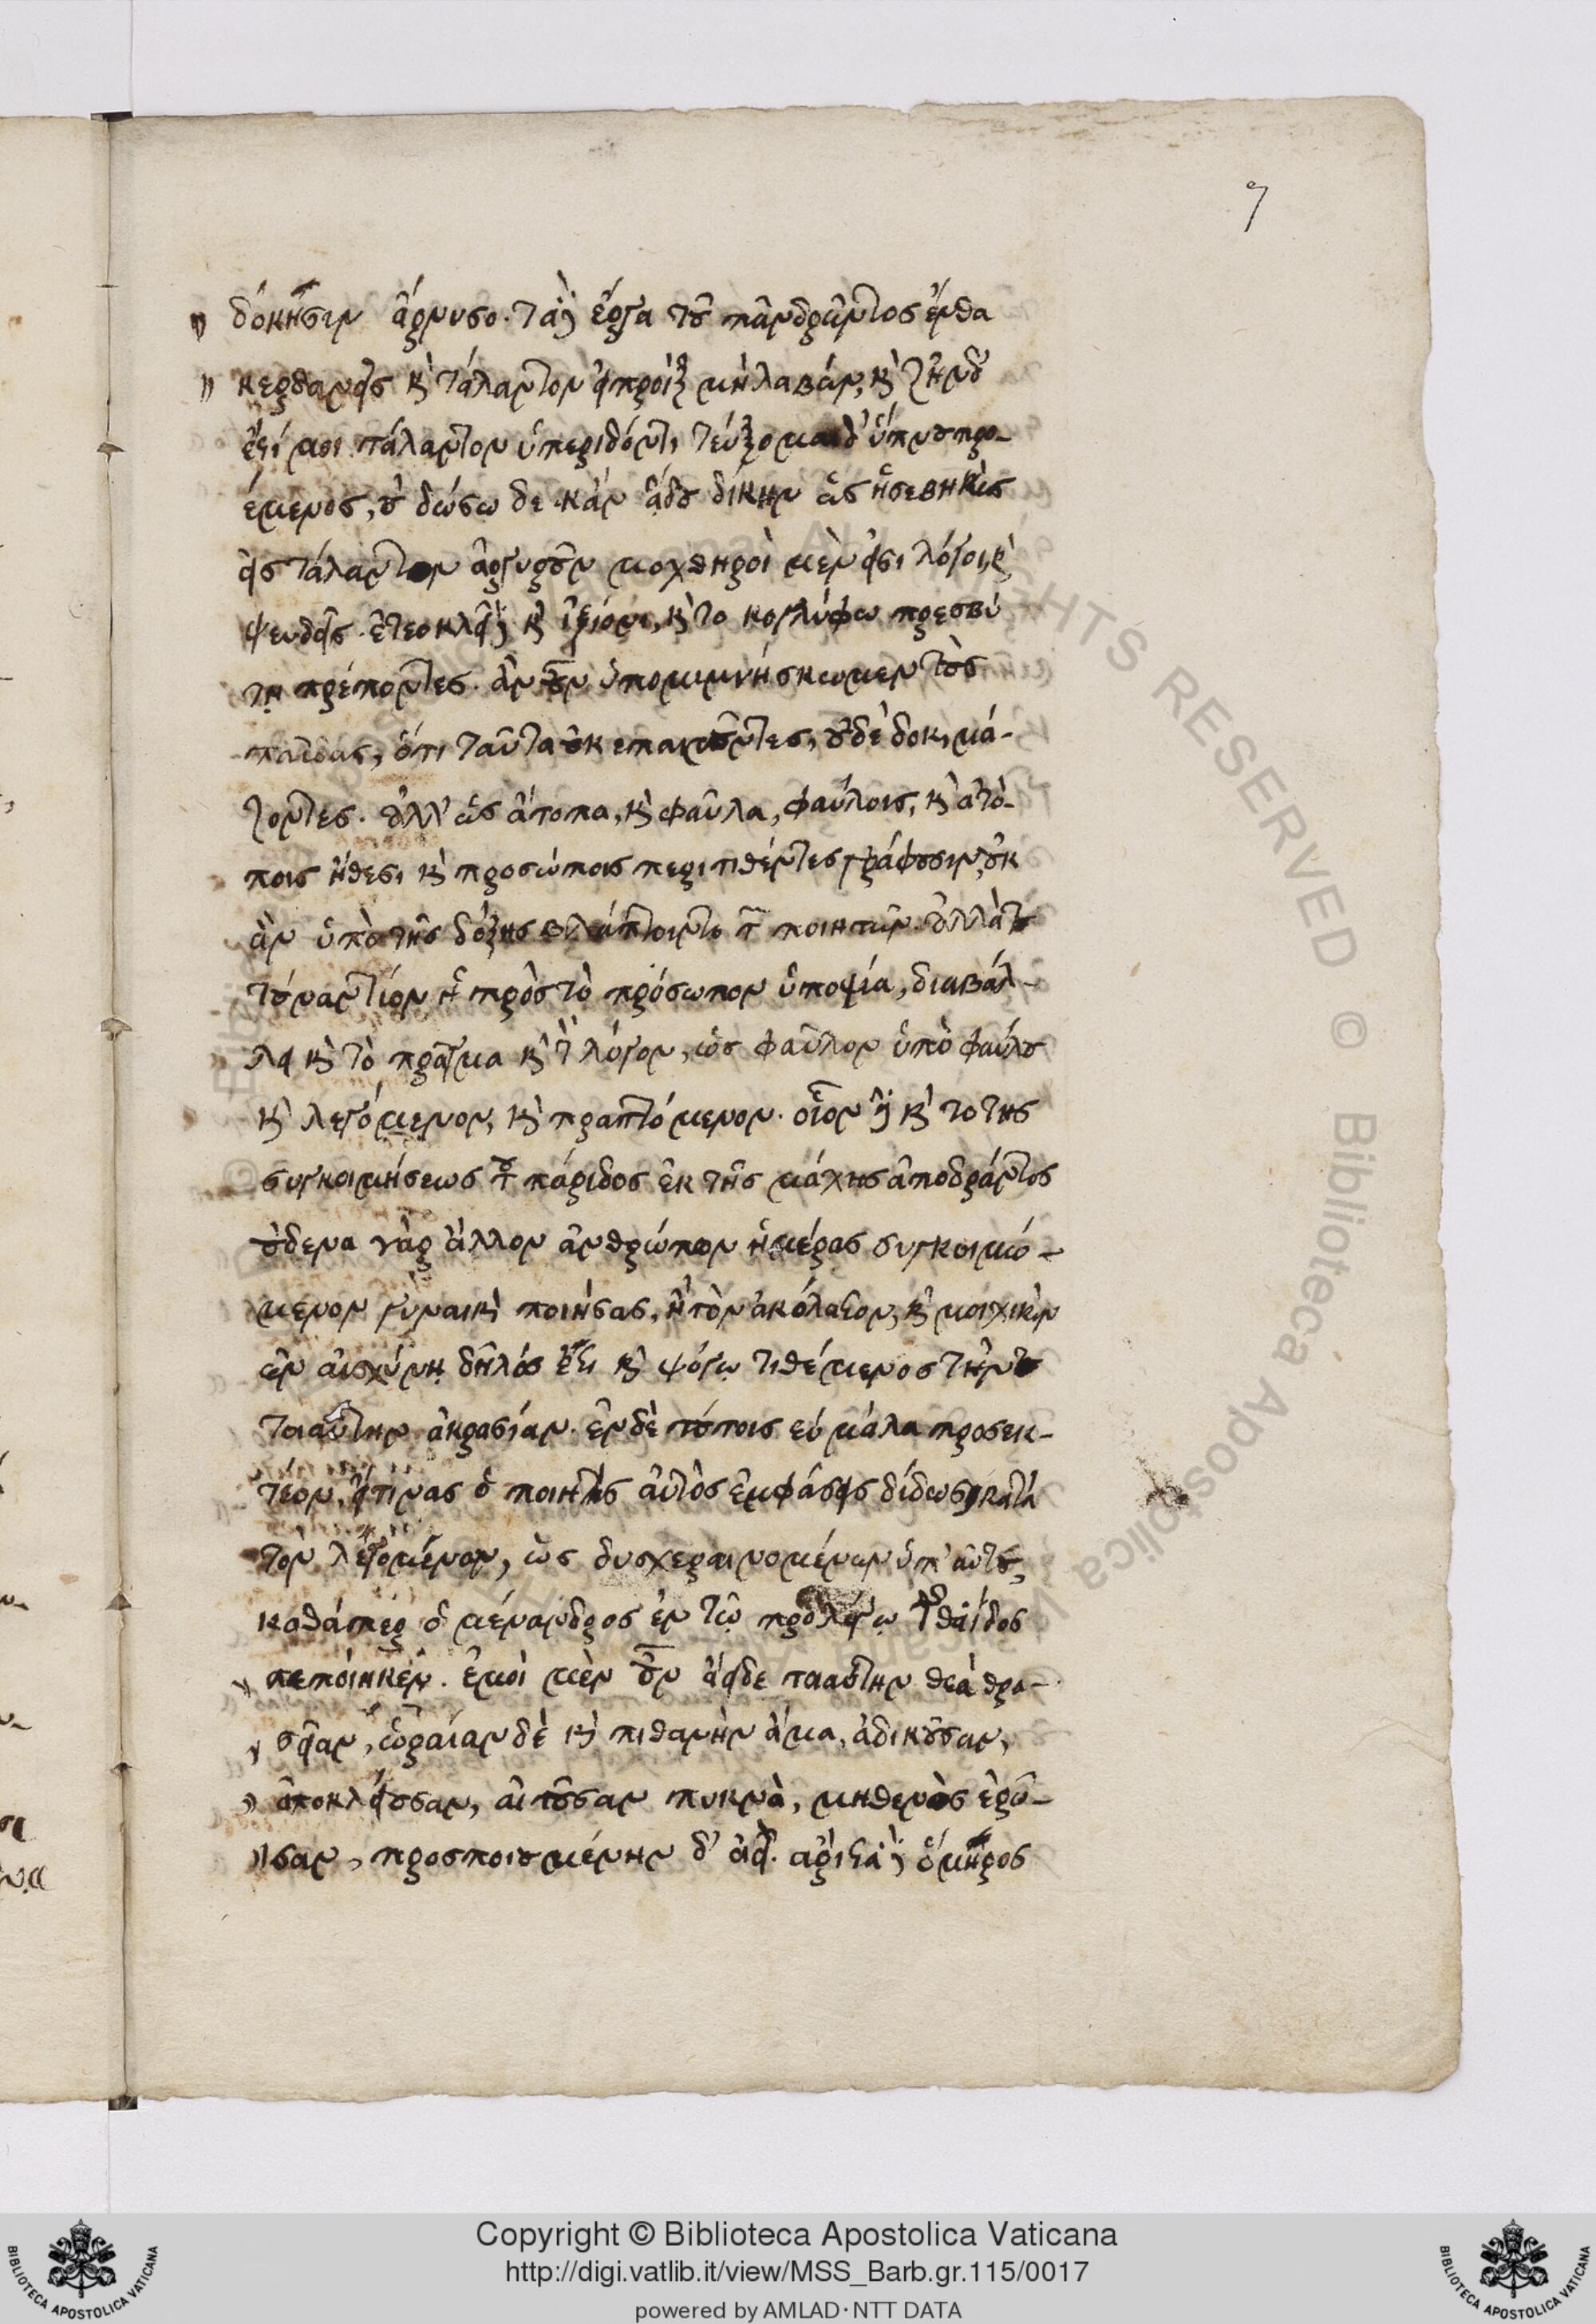 7
" δόκησιν ἄρνυσο. τὰ δ' ἔργα τοῦ πᾶν δρῶντος ἔνθα
" κερδανεῖς καὶ τάλαντον ἡ προῖξ μὴ λαβών, καὶ ζῆν δ'
ἔστί μοι τάλαντον ὑπεριδόντι, τεύξομαι δ' ὕπνου προ-
έμενος, οὐ δώσω δὲ κἀν ᾅδου δίκην ὡς ἠσεβηκὼς
εἰς τάλαντον ἀργυροῦν μοχθηροὶ μὲν εἰσι λόγοι καὶ
ψευδεῖς. ἐτεοκλεῖ δὲ καὶ ἰξίονι, καὶ τοκογλύφω πρεσβύ
τῃ πρέποντες. ἂν οὖν ὑπομιμνήσκωμεν τοὺς
παῖδας, ὅτι ταῦτα οὐκ επαινοῦντες, οὐδὲ δοκιμά-
ζοντες. ἀλλ' ὡς ἄτοπα, καὶ φαῦλα, φαύλοις, καὶ ἀτό-
ποις ἤθεσι καὶ προσώποις περιτιθέντες γράφουσιν, οὐκ
ἂν ὑπὸ τῆς δόξης βλάπτοιντο τῶν ποιητῶν. ἀλλὰ το
τουναντίον ἡ πρὸς τὸ πρόσωπον ὑποψία, διαβάλ-
λει καὶ τὸ πρᾶγμα καὶ τὸν λόγον, ὡς φαῦλον ὑπὸ φαύλου
καὶ λεγόμενον, καὶ πραττόμενον. οἷόν ἐστι καὶ το της
συγκοιμήσεως τοῦ πάριδος ἐκ τῆς μάχης ἀποδράντος
οὐδενα γὰρ ἄλλον ἀνθρώπων ἡμέρας συγκοιμώ-
μενον γυναικὶ ποιήσας, ἢ τὸν ἀκόλαστον, καὶ μοιχικὸν
ἐν αἰσχύνῃ δῆλός ἐστι καὶ ψόγῳ τιθέμενος τὴν
τοιαύτην ἀκρασίαν. ἐν δὲ τούτοις εὐ μάλα προσεκ-
τέον, εἴ τινας ὁ ποιητὴς αὐτὸς ἐμφάσεις δίδωσι κατὰ
τῶν λεγομένων, ὡς δυσχεραινομένων ὑπ' αὐτοῦ,
καθάπερ ὁ μένανδρος ἐν τῷ προλόγῳ τῆς θαΐδος
" πεποίηκεν. ἐμοὶ μὲν οὖν ἄειδε τοιαύτην θεὰ θρα-
" σεῖαν, ὡραίαν δὲ καὶ πιθανὴν ἅμα, ἀδικοῦσαν,
" ἀποκλείουσαν, αἰτοῦσαν πυκνὰ, μηθενὸς ἐρῶ-
" σαν, προσποιουμένην δ' ἀεί. ἄριστα δ' ὅμηρος
Copyright © Biblioteca Apostolica Vaticana
http://digi.vatlib.it/view/MSS_Barb.gr.115/0017
powered by AMLAD·NTT DATA